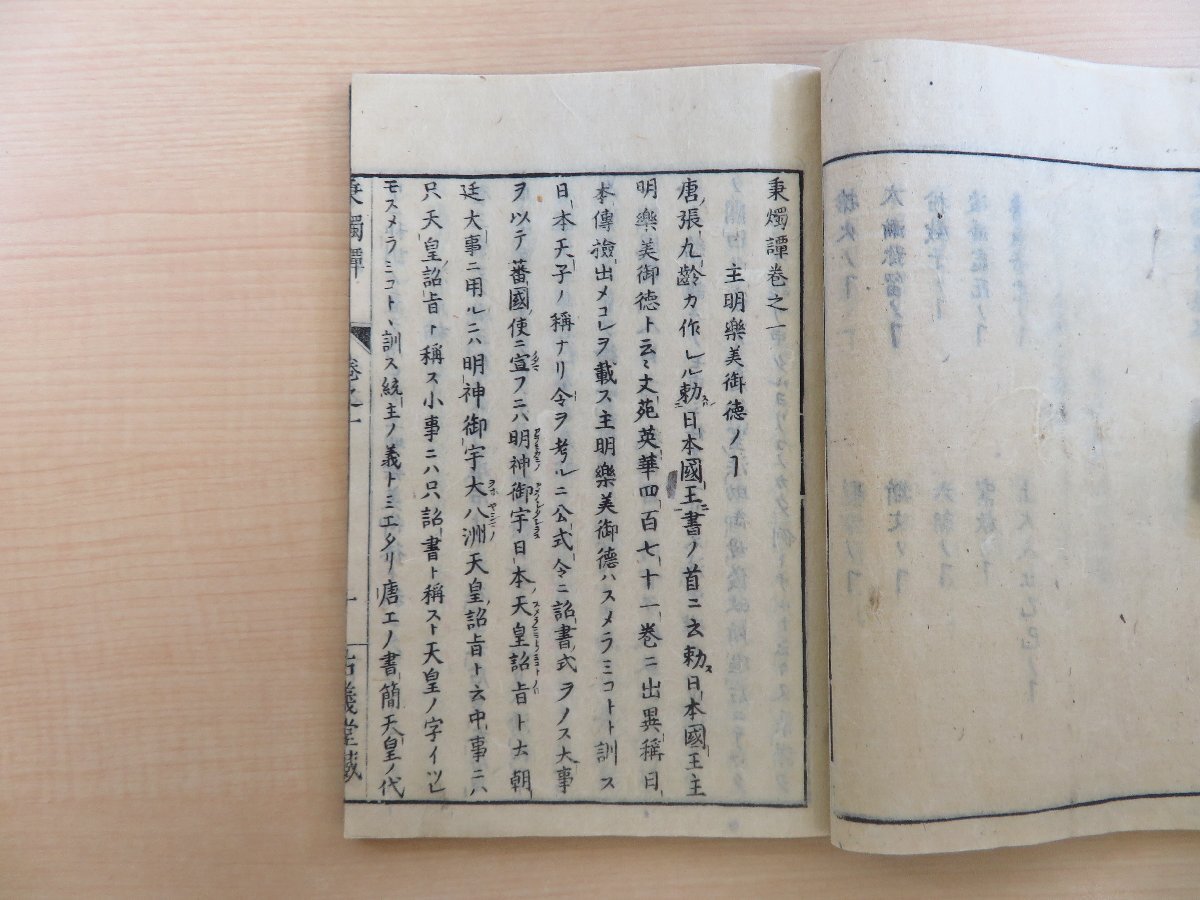 秉燭譚巻之一
主明樂美御德ノヿ
唐ノ張九齡カ作レル勅日本國王書ノ首ニ云勅ス日本國王主
明樂美御德ト云々文苑英華四百七十一巻ニ出異稱日
本傳撿出メコレヲ載ス主明樂美御德ハスメラミコトト訓ス
日本天子ノ稱ナリ令ヲ考ルニ公式令ニ詔書式ヲノス大事
ヲ以テ蕃國使ニ宣フニハ明神御宇日本天皇詔旨ト云朝
廷大事ニ用ルニハ明神御宇大八洲天皇詔旨ト云中事ニハ
只天皇詔旨ト稱ス小事ニハ只詔書ト稱スト天皇ノ字イツレ
モスメラミコトヽ訓ス統主ノ義トミエタリ唐エノ書簡天皇ノ代
秉燭譚 巻之一 一 古義堂藏